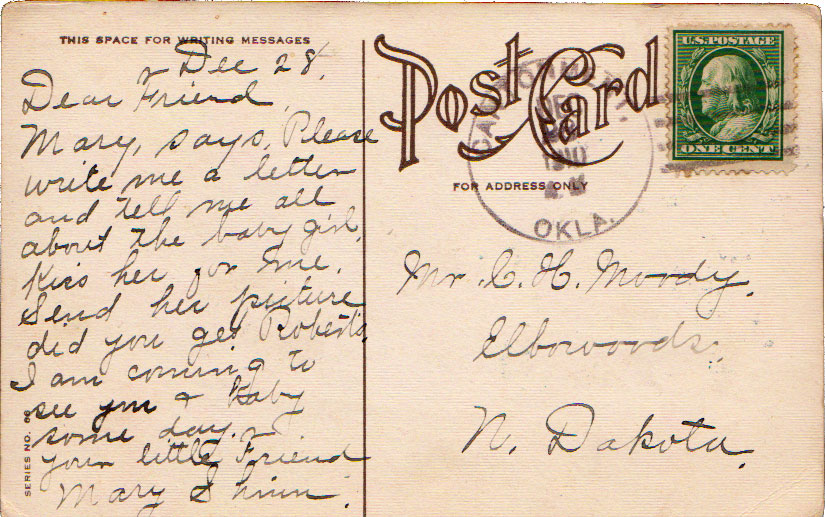 THIS SPACE FOR WRITING MESSAGES
Dec 28,
Dear Friend,
Mary, says, Please
write me a letter
and tell me all
about the baby girl,
Kiss her for me.
Send her picture
did you get Roberts,
I am coming to
see you & Baby
some day.
your little Friend
Mary
SERIES NO.
Post Card
FOR ADDRESS ONLY
1910
OKLA.
U.S. POSTAGE
ONE CENT
Mr. C. H. Moody,
Elbowoods,
N. Dakota.